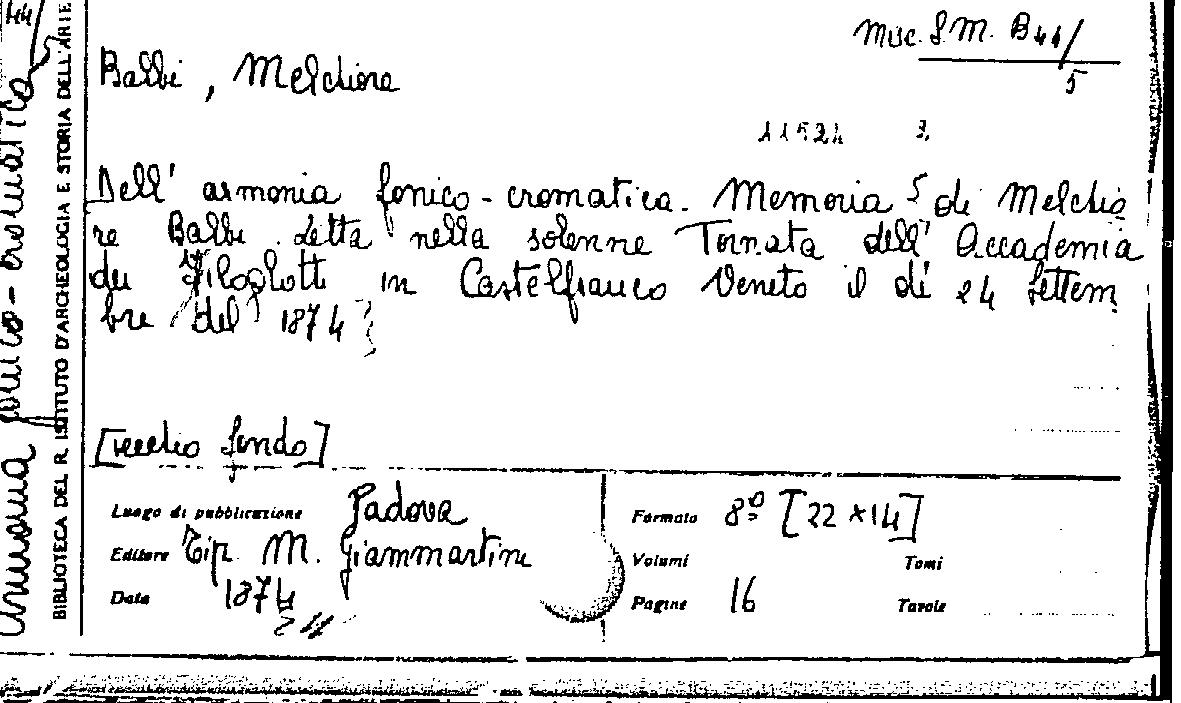 Misc. S.M. B44/
5
Balbi, Melchiore
11524 3.
Dell' armonia fonico-cromatica. Memoria 5 di Melchio
re Balbi detta nella solenne Tornata dell' Accademia
dei Filoglotti in Castelfranco Veneto il dì 24 Settem
bre del 1874
[vecchio fondo]
Luogo di pubblicazione Padova
Editore Tip. M. Giammartini
Data 1874
Formato 8º [22 x 14]
Volumi Tomi
Pagine 16 Tavole
BIBLIOTECA DEL R. ISTITUTO D'ARCHEOLOGIA E STORIA DELL'ARTE
Armonia fonico-cromatica
44/
5